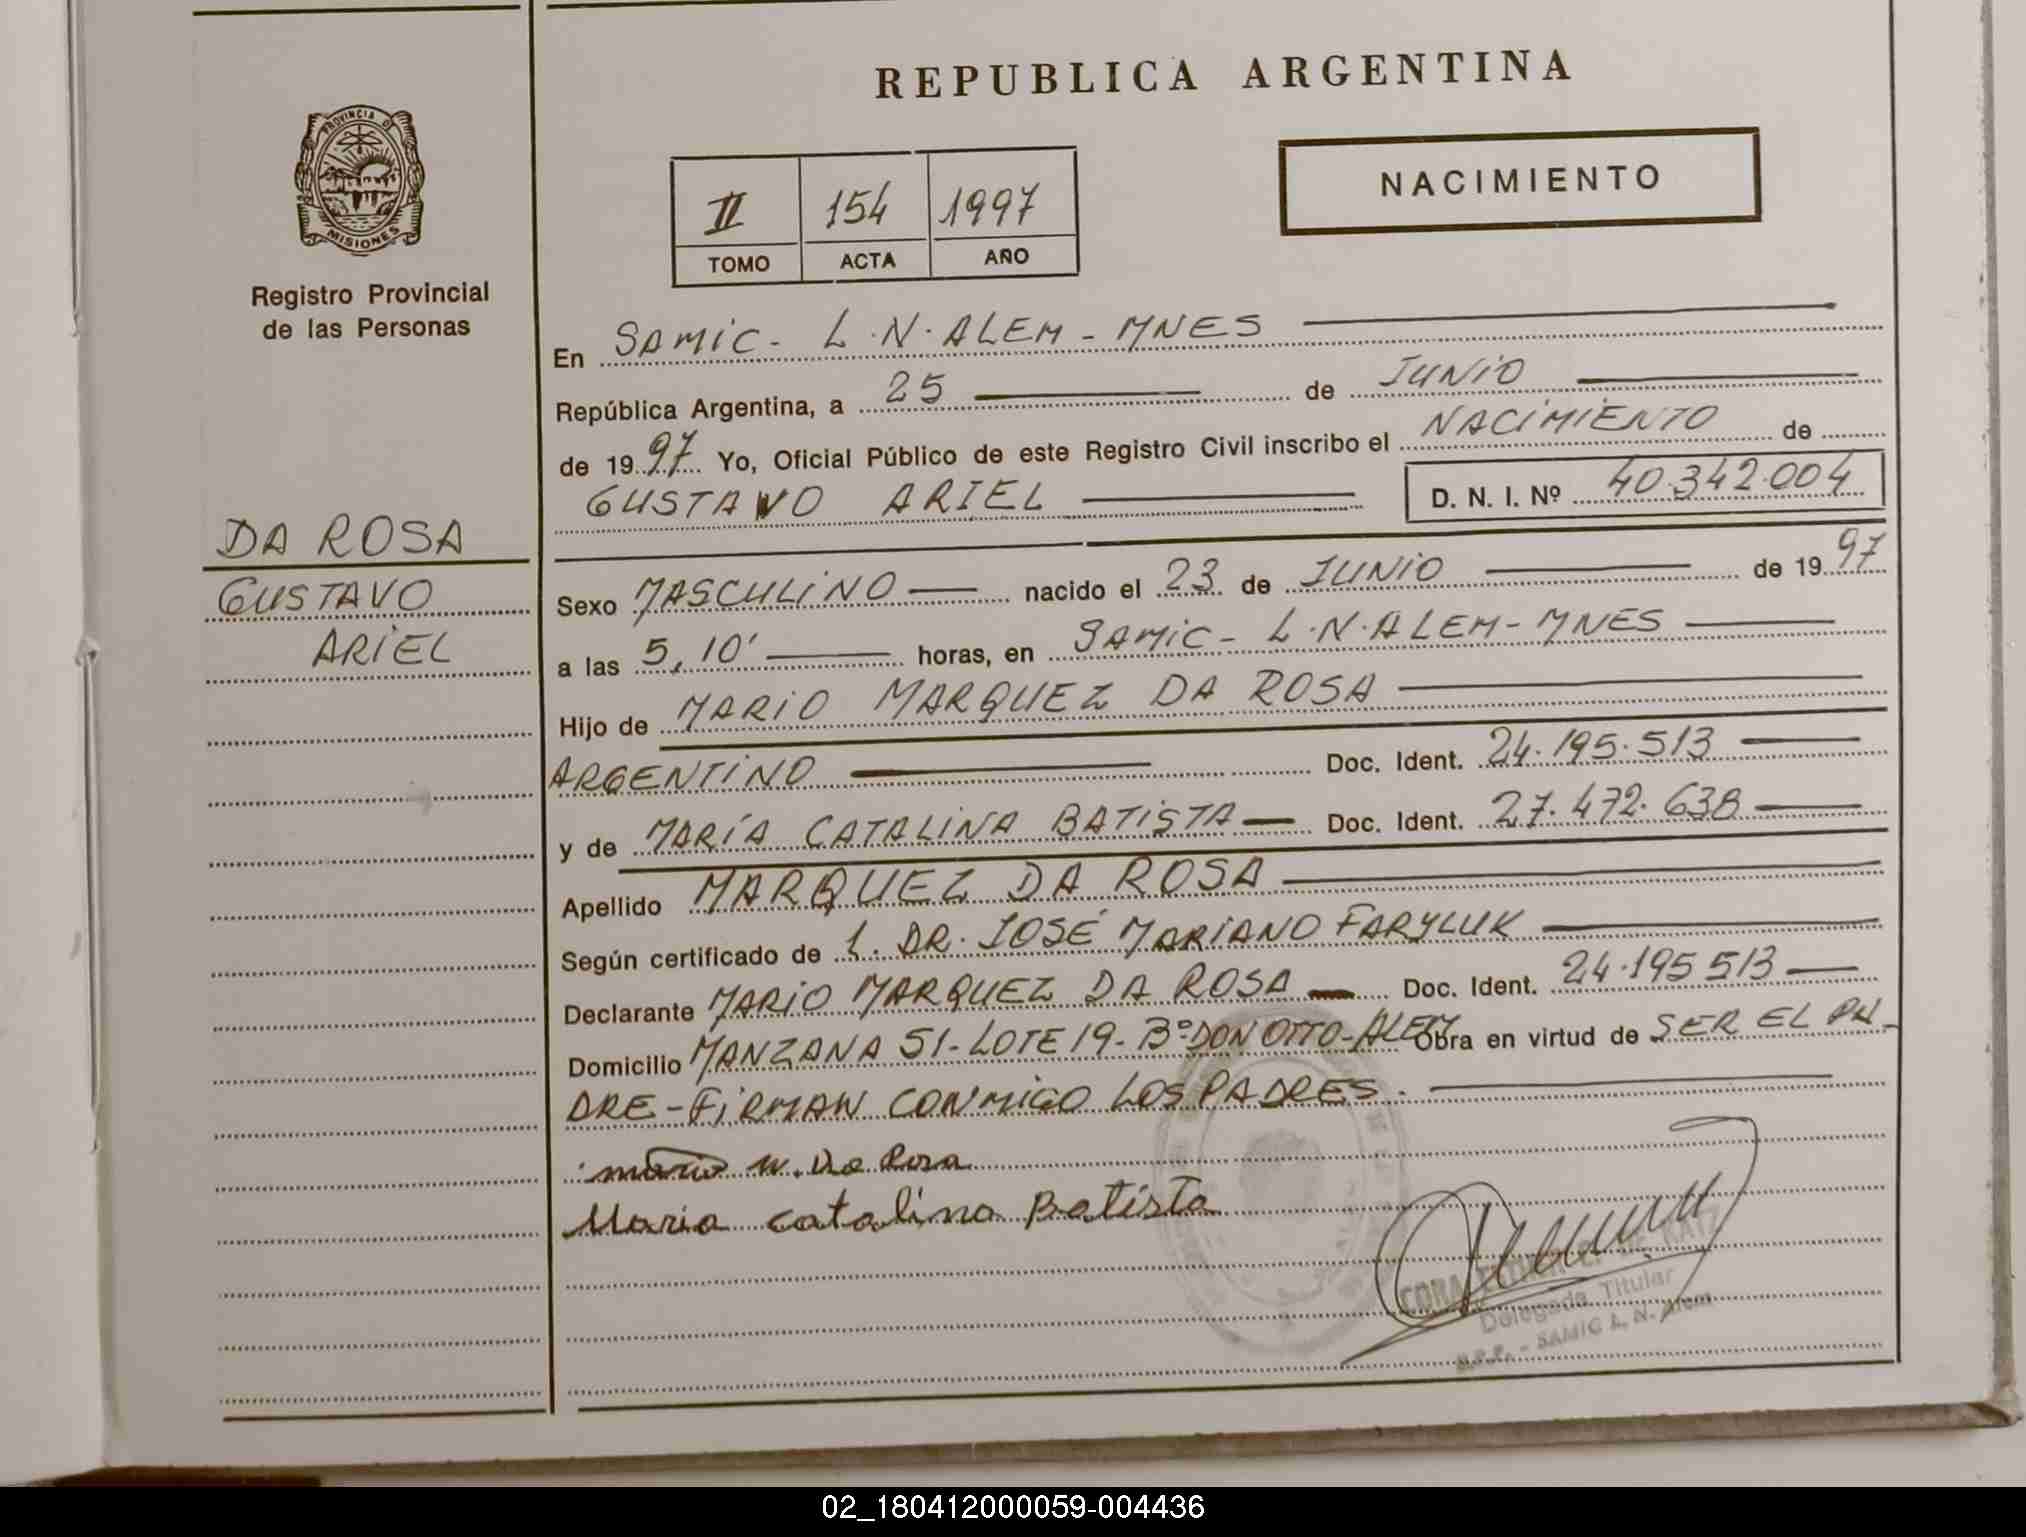 REPUBLICA ARGENTINA
PROVINCIA DE
MISIONES
Registro Provincial
de las Personas
NACIMIENTO
II 154 1997
TOMO ACTA AÑO
En SAMIC - L.N. ALEM - MNES
República Argentina, a 25 de JUNIO
de 1997 Yo, Oficial Público de este Registro Civil inscribo el NACIMIENTO de
GUSTAVO ARIEL D. N. I. Nº 40.342.004
DA ROSA
GUSTAVO
ARIEL
Sexo MASCULINO nacido el 23 de JUNIO de 1997
a las 5,10' horas, en SAMIC - L.N. ALEM - MNES
Hijo de MARIO MARQUEZ DA ROSA
ARGENTINO Doc. Ident. 24.195.513
y de MARÍA CATALINA BATISTA Doc. Ident. 27.472.638
Apellido MARQUEZ DA ROSA
Según certificado de 1. DR. JOSÉ MARIANO FARYLUK
Declarante MARIO MARQUEZ DA ROSA Doc. Ident. 24.195513
Domicilio MANZANA 51 - LOTE 19 - Bº DON OTTO - ALEM Obra en virtud de SER EL PA-
DRE - FIRMAN CONMIGO LOS PADRES.
mario M. Da Rosa
Maria catalina Batista
Delegada Titular
R.P.P. - SAMIC L. N. Alem
02_180412000059-004436